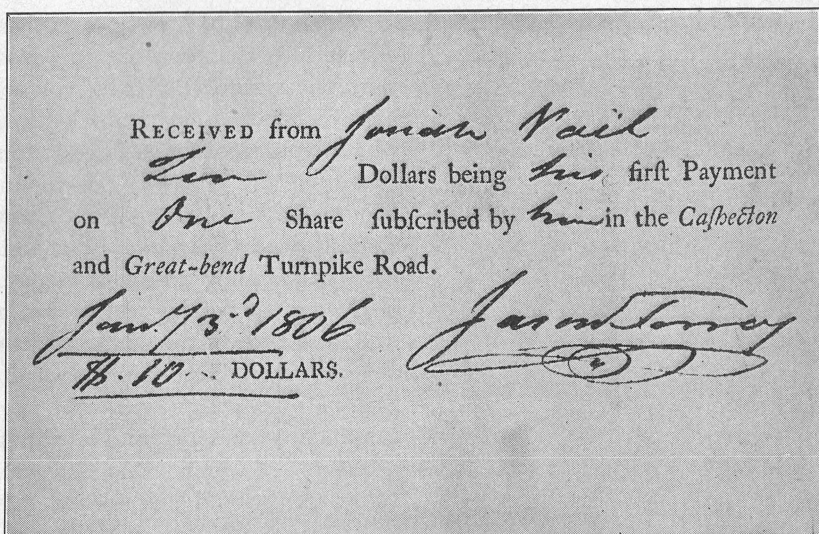 RECEIVED from Josiah Vail
Ten Dollars being his firſt Payment
on One Share ſubſcribed by him in the Caſhecton
and Great-bend Turnpike Road.
Jany 3d 1806
Jason Torrey
$. 10 DOLLARS.